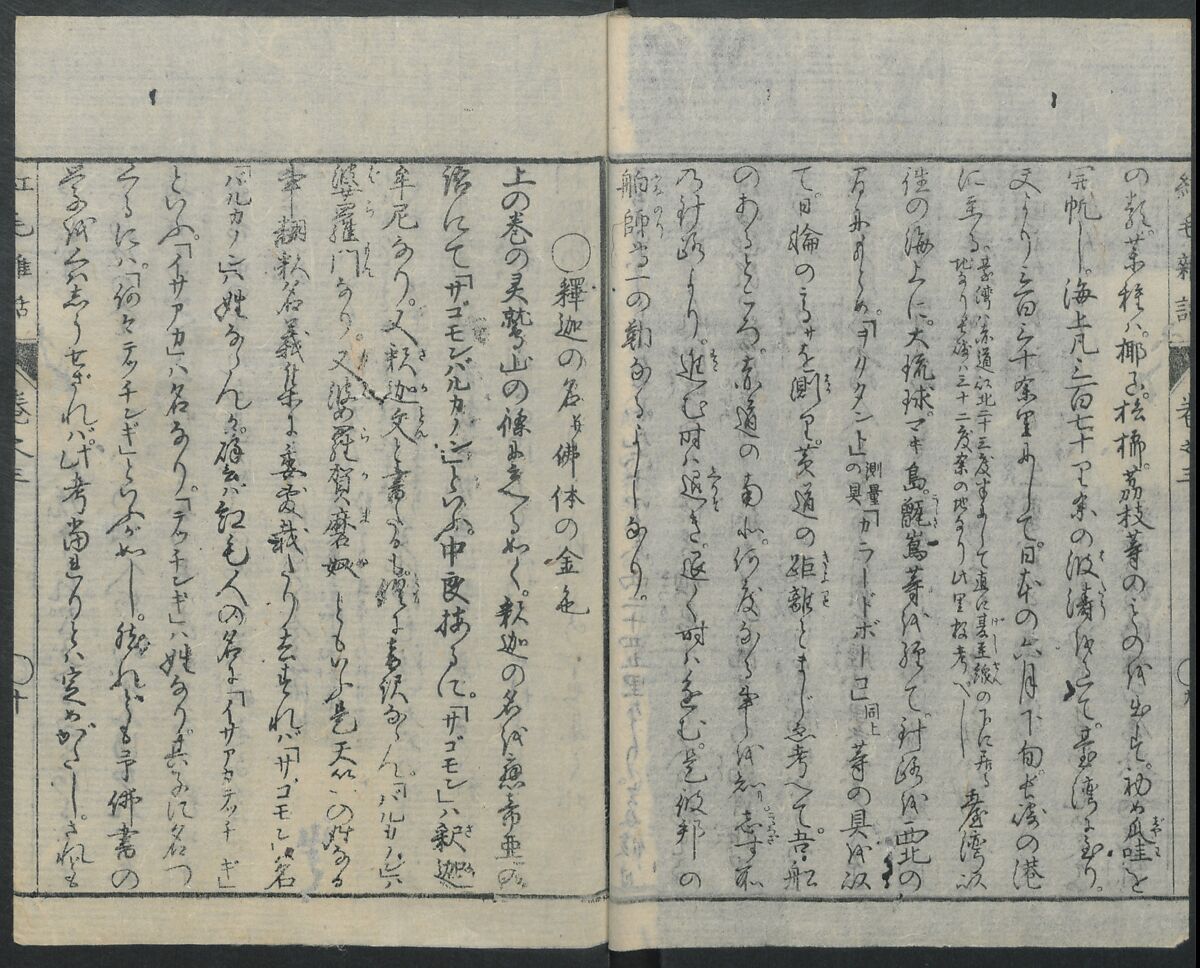 紅毛雑話 巻之三 ○九
の類菓種ハ椰子松榧荔枝等のものを出す。初め爪哇を
開帆し。海上凡三百七十里余の波濤を経て。臺湾に至り。
夫より三百三十余里にして。日本の六月下旬。長崎の港
に至る。臺湾ハ赤道以北二十三度 の下に 地なり長崎ハ三十二度余の地なり此里数考べし 臺湾以
往の海上に。大琉球。マキ島。等を経て。針路を西北の
間にもとめ。「ヲクタント」測量の具「ガラードボーコ」同上等の具を以
て。日輪の高サを測り。黄道の距離とまじへ考へて。吾船
のあるところ。赤道の南北。何度なる事を知り。
乃針路より。進む時ハ退き。退く時ハ進む。是彼邦の
舶師第一の勤なるよしなり。
○釋迦の名并佛体の金色
上の巻の灵鷲山の條に見へる如く。釈迦の名を應帝亜の
語にて「サゴモンバルカノン」といふ。中良按るに。「サゴモン」ハ釈迦
牟尼なり。又釈迦文と書たるも。 「バルカノン」ハ
婆羅門なり。又婆羅賀磨奴ともいふ是天竺の姓なる
事翻釈名義集に委く載たり左すれバ「サゴモン」ハ名
「バルカノン」ハ姓ならんか。譬ヘバ紅毛人の名に「イサアカテッチンギ」
といふ。「イサアカ」ハ名なり。「テッチンギ」ハ姓なり其子に名つ
くるにハ。「何々テッチンギ」といふが如し。然れども予佛書の
学をくハしうせざれバ。此考当れりとハ定めがたし。されども
紅毛雑話 巻之三 ○十